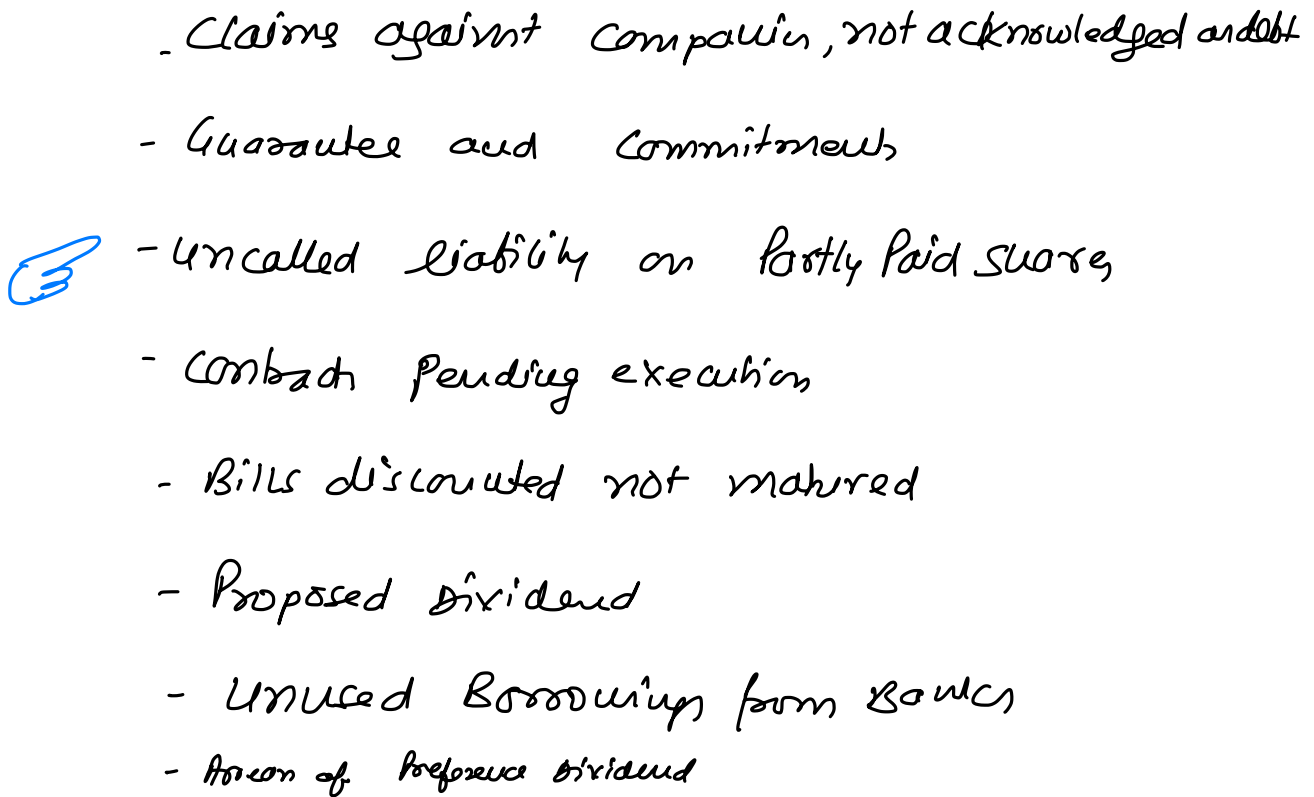 - Claims against companies, not acknowledged as debt
- Guarantee and commitments
- uncalled liability on Partly Paid shares
- contracts Pending execution
- Bills discounted not matured
- Proposed Dividend
- unused Borrowings from Banks
- Arrear of Preference Dividend